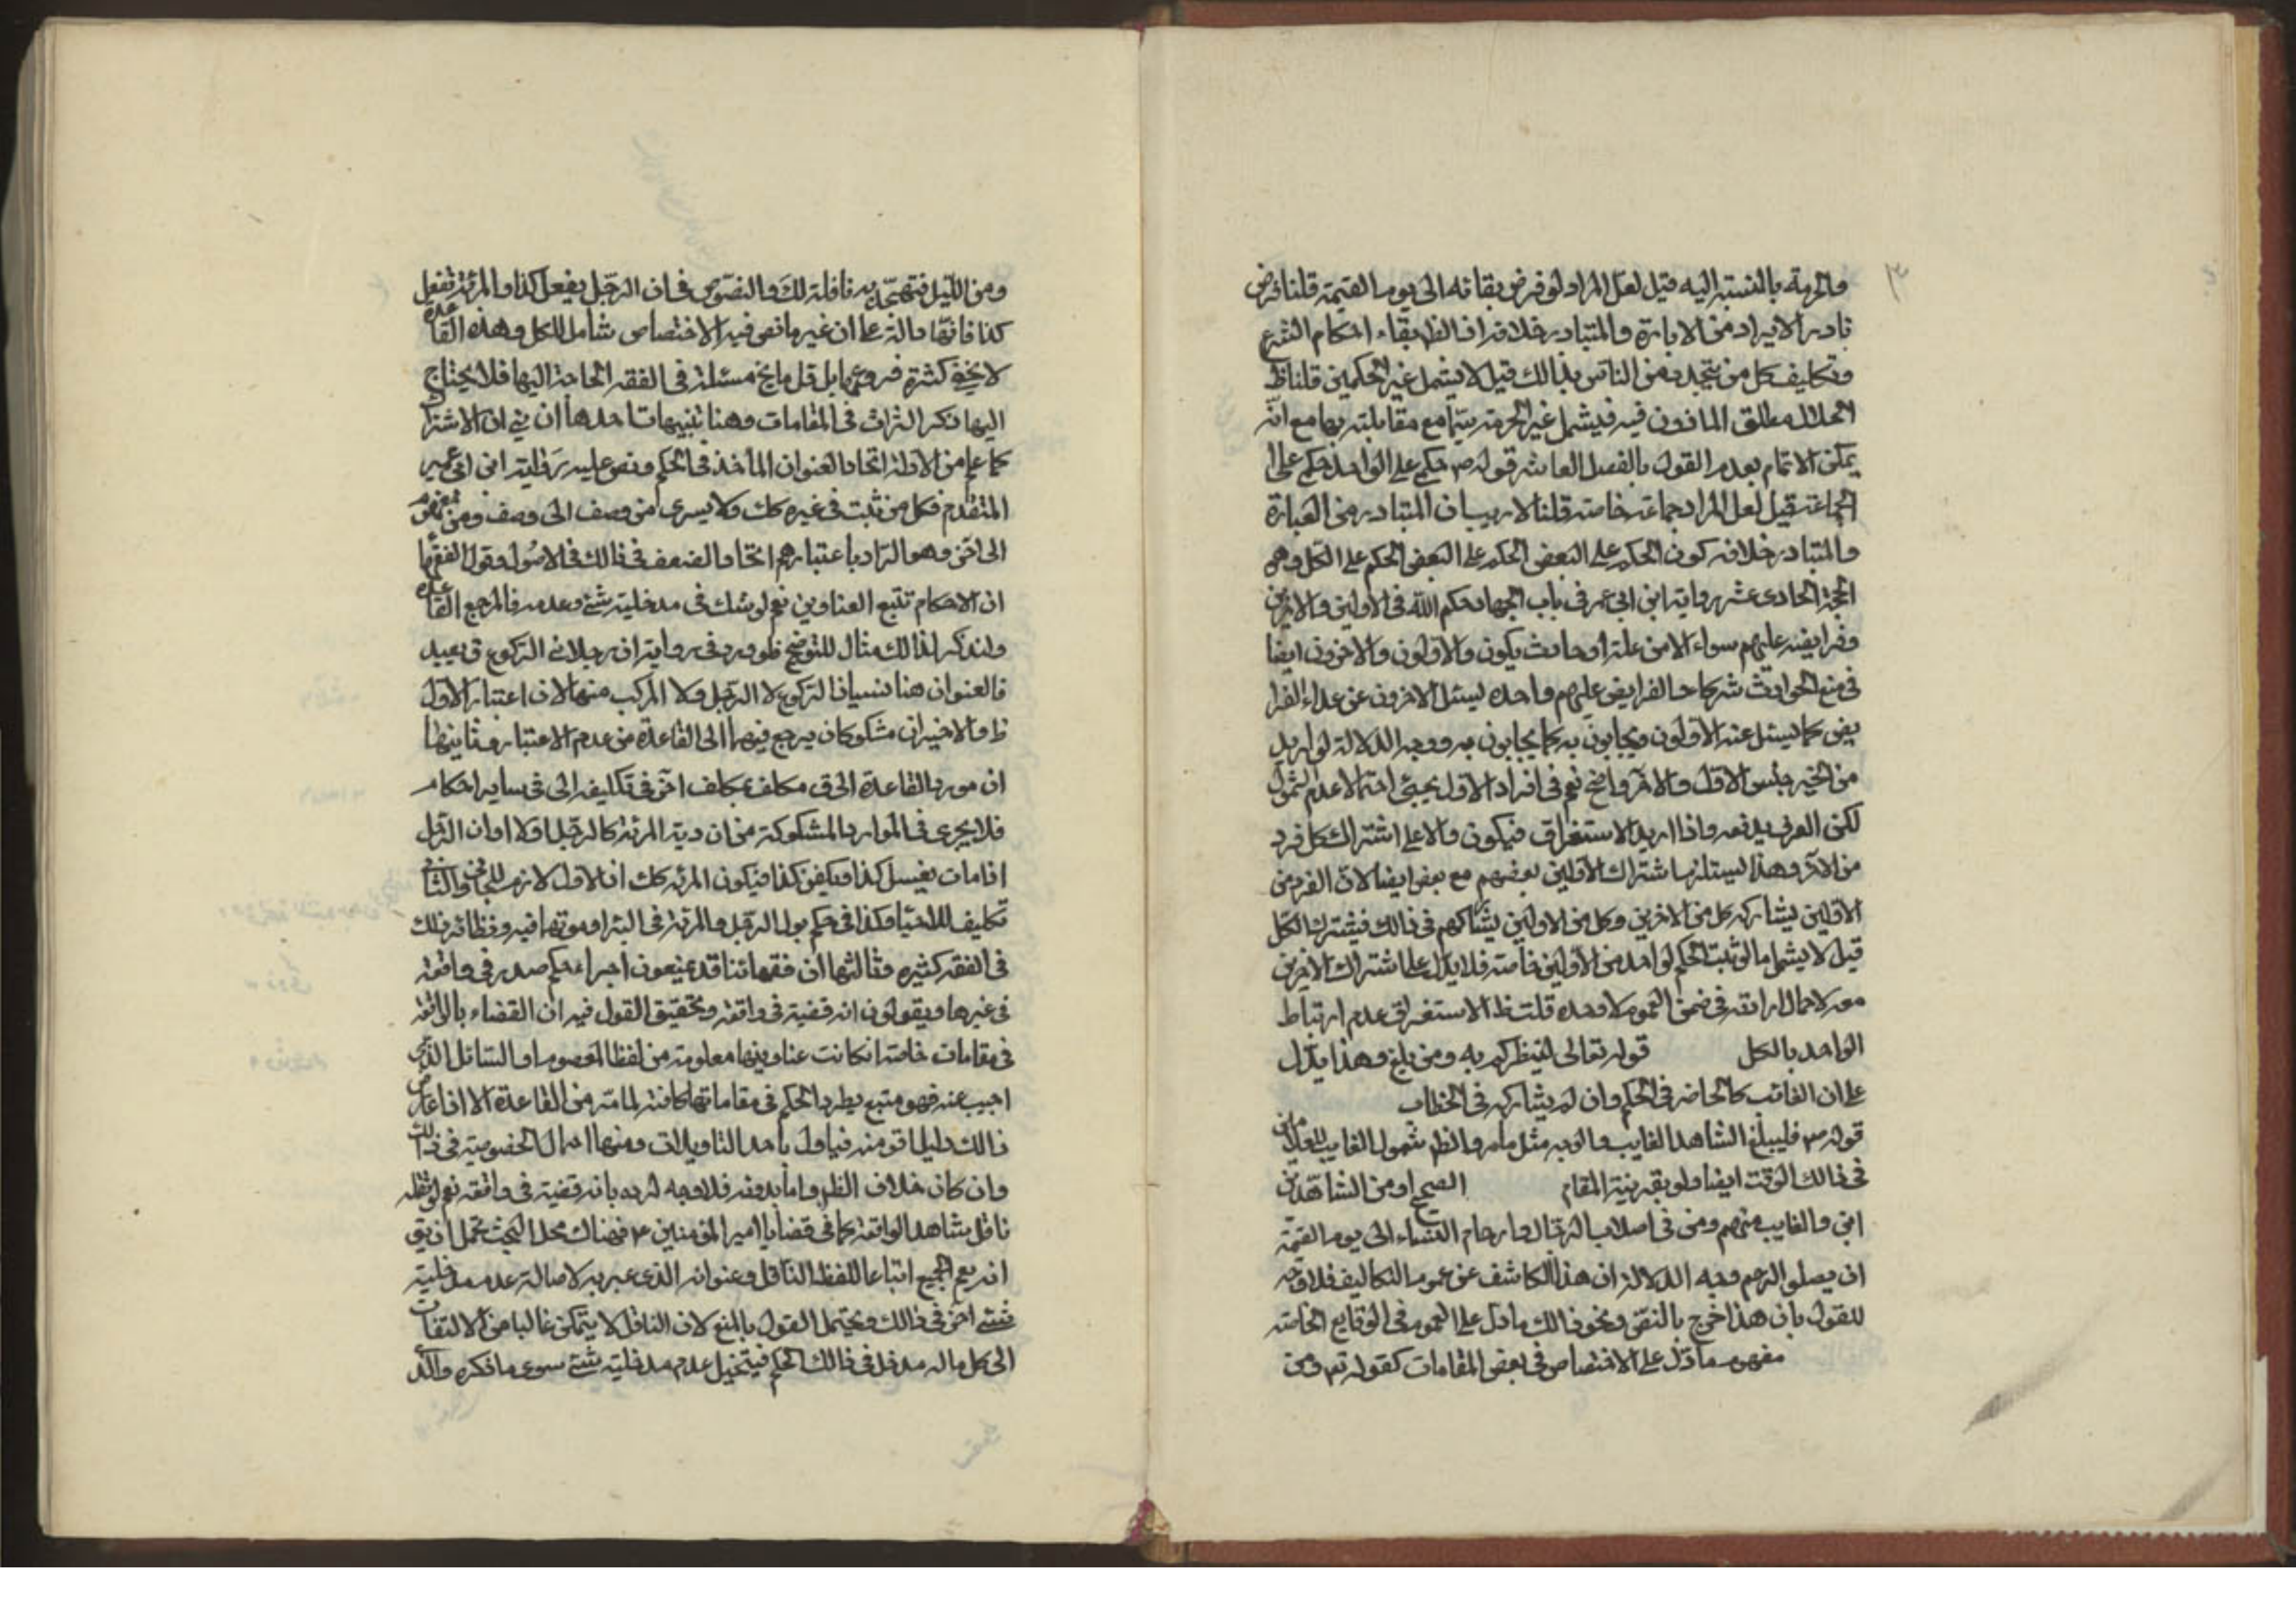 والحرمة بالنسبة اليه قيل لعل المراد لو فرض بقائه الى يوم القيمة قلنا فرض
نادر لا يراد من الابارة والمتبادر خلافه اذ الظ بقاء احكام الشرع
وتكليف كل من يتجدد من الناس بذالك قيل لا يشمل غير الحكمين قلنا ظ
الحلال مطلق المأذون فيه فيشمل غير الحرمة سيما مع مقابلته بها مع انه
يمكن الاتمام بعدم القول بالفصل العاشر قوله ص حكمي على الواحد حكمي على ا
الجماعة قيل لعل المراد جماعة خاصة قلنا لا ريب ان المتبادر من العبارة
والمتبادر خلافه كون الحكم على البعض الحكم على البعض الحكم على الكل وهو
الحجة الحادى عشر رواية ابن ابي عمر في باب الجهاد حكم الله في الاولين والاخرين
وفرايضه عليهم سواء الا من علة او حادث يكون والاولون والاخرون ايضا
في منع الحوادث شركاء والفرايض عليهم واحده يسئل الاخرون عن عداء الفرا
يض كما يسئل عنه الاولون ويحابون به كما يحابون به ووجه الدلالة لو اريد
من الخبر جنس الاول والاخر واضح نعم في افراد الاول يجيئ احتمالا عدم شمول
لكن العرف يدفعه واذا اريد الاستغراق فيكون والا على اشتراك كل فرد
من الاخر وهذا يستلزم اشتراك الاولين بعضهم مع بعض ايضا لان الفرد من
الاولين يشاركه كل من الاخرين وكل من الاولين يشاركهم في ذالك فيشترك الكل
قيل لا يشمل ما لو ثبت الحكم لواحد من الاولين خاصة فلا يدل على اشتراك الاخرين
معه لاحمال ارادته في ضمن العموم لا وحده قلت ظ الاستغراق عدم ارتباط
الواحد بالكل قوله تعالى لينظركم به ومن بلغ وهذا يدل
على ان الغائب كالحاضر في الحكم وان لم يشاركه في الخطاب
قوله ص فليبلغ الشاهد الغايب والوجه مثل ما مر والظم شمول الغايب للمعدومين
في ذالك الوقت ايضا ولو بقرينة المقام الصحيح اومن الشاهد من
امتي والغايب منهم ومن في اصلاب الرجال وارحام النساء الى يوم القيمة
ان يصلوا الرحم وجه الدلالة ان هذا الكاشف عن عموم التكاليف فلا وجه
للقول بان هذا خرج بالنص ونحو ذالك ما دل على العموم في الوقايع الخاصة
مفهوم ما دل على الاختصاص في بعض المقامات كقوله تم ومن
ومن الليل فتهجد به نافلة لك والنصوص في ان الرجل يفعل كذا والمرئة تفعل
كذا فانها دالة على ان غير ما نص فيه الاختصاص شامل للكل وهذه القاعدة
لا يخفى كثرة فروعها بل قل ما يخ مسئلة في الفقه الحاجة اليها فلا يحتاج
اليها ذكر الثمرات في المقامات وهنا تنبيهات احدها ان في ان الاشتراك
كما علم من الادلة اتحاد العنوان المأخذ في الحكم ونص عليه رواية ابن ابي عمير
المتقدم فكل من ثبت في غيره كك ولا يسرى من وصف الى وصف ومن مفهوم
الى اخر وهو المراد باعتبارهم اتحاد الصنف في ذالك في الاصول وقول الفقها
ان الاحكام تتبع العناوين نعم لو شك في مدخلية شئ وعدمه فالمرجع القاعدة
ولنذكر لذالك مثال للتوضيح فلو ورد في رواية ان رجلا نسى الركوع ق يعيد
فالعنوان هنا نسيان الركوع لا الرجل ولا المركب منهما لان اعتبار الاول
ظ والاخيران مشكوكان يرجع فيهما الى القاعدة من عدم الاعتبار وثانيها
ان مورد القاعدة الحاق مكلف بمكلف اخر في تكليف الى في ساير احكام
فلا يجرى في الموارد المشكوكة من ان دية المرئة كالرجل او لا او ان الرجل
اذا مات يغسل كذا ويكفن كذا فيكون المرئة كك اذ الاول لازم للجاني والثاني
تكليف للاحياء وكذا في حكم بول الرجل والمرئة في البئر او موتهما فيه ونظائر ذلك
في الفقه كثيره وثالثها ان فقهائنا قد يمنعون اجراء حكم صدر في واقعة
في غيرها ويقولون انه قضية في واقعة وتحقيق القول فيه ان القضاء بالواقعة
في مقامات خاصة ان كانت عناوينها معلومة من لفظ المعصوم او السائل الذى
اجيب عنه فهو متبع يطرد الحكم في مقاماتها كافة لما مر من القاعدة الا اذا عارض
ذالك دليل اقوى منه فياول باحد التاويلات ومنها احمال الخصوصية في ذالك
وان كان خلاف الظم واما بدونه فلا وجه لرده بانه قضية في واقعة نعم لو نقل
ناقل شاهد الواقعة كما في قضايا امير المؤمنين ع فهناك محل البحث يحمل ان يق
انه يعم الجميع اتباعا للفظ الناقل وعنوانه الذى عبر به لاصالة عدم مدخلية
شئ اخر في ذالك ويحتمل القول بالمنع لان الناقل لا يتمكن غالبا من الالتفات
الى كل ما له مدخل في ذالك الحكم فيتخيل عدم مدخلية شئ سوى ما ذكره والذ